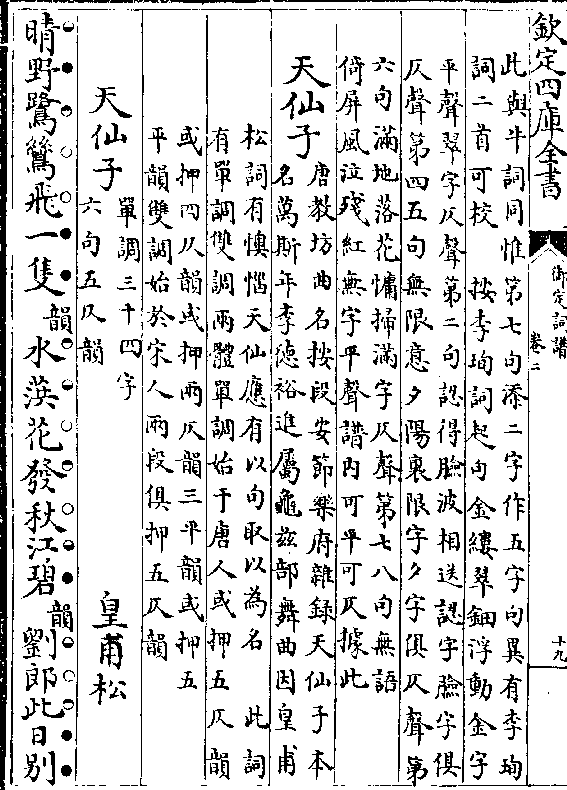 欽定四庫全書
御定詞譜
卷二
十九
此與牛詞同惟第七句添二字作五字句異有李珣
詞二首可校　按李珣詞起句金縷翠鈿浮動金字
平聲翠字仄聲第二句認得臉波相送認字臉字俱
仄聲第四五句無限意夕陽裏限字夕字俱仄聲第
六句滿地落花慵掃滿字仄聲第七八句無語
倚屏風泣殘紅無字平聲譜內可平可仄據此
天仙子
唐教坊曲名按段安節樂府雜錄天仙子本
名萬斯年李德裕進屬龜茲部舞曲因皇甫
松詞有懊惱天仙應有以句取以為名　此詞
有單調雙調兩體單調始于唐人或押五仄韻
或押四仄韻或押兩仄韻三平韻或押五
平韻雙調始於宋人兩段俱押五仄韻
天仙子
單調三十四字
六句五仄韻
皇甫松
晴野鷺鷥飛一隻韻水葓花發秋江碧韻劉郎此日别